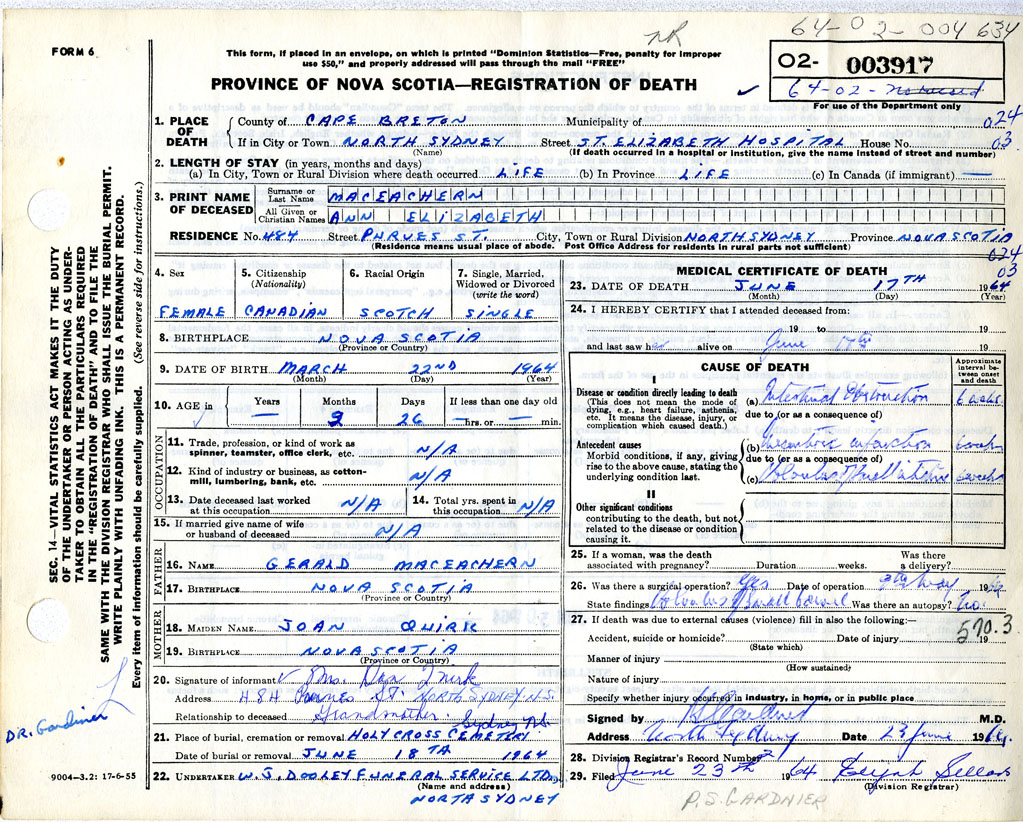 64-02-004 634
NR
FORM 6
This form, if placed in an envelope, on which is printed "Dominion Statistics—Free, penalty for improper
use $50," and properly addressed will pass through the mail "FREE"
02- 003917
64-02-
For use of the Department only
PROVINCE OF NOVA SCOTIA—REGISTRATION OF DEATH
1. PLACE OF DEATH
County of CAPE BRETON Municipality of 024
If in City or Town NORTH SYDNEY Street ST. ELIZABETH HOSPITAL House No. 03
(Name) (If death occurred in a hospital or institution, give the name instead of street and number)
2. LENGTH OF STAY (in years, months and days)
(a) In City, Town or Rural Division where death occurred LIFE (b) In Province LIFE (c) In Canada (if immigrant) —
3. PRINT NAME OF DECEASED
Surname or Last Name MACEACHERN
All Given or Christian Names ANN ELIZABETH
RESIDENCE No. 484 Street PURVES ST. City, Town or Rural Division NORTH SYDNEY Province NOVA SCOTIA
(Residence means usual place of abode. Post Office Address for residents in rural parts not sufficient)
024
03
4. Sex
FEMALE
5. Citizenship
(Nationality)
CANADIAN
6. Racial Origin
SCOTCH
7. Single, Married,
Widowed or Divorced
(write the word)
SINGLE
8. BIRTHPLACE NOVA SCOTIA
(Province or Country)
9. DATE OF BIRTH MARCH 22ND 1964
(Month) (Day) (Year)
10. AGE in
Years Months Days If less than one day old
— 2 26 — hrs. or — min.
OCCUPATION
11. Trade, profession, or kind of work as
spinner, teamster, office clerk, etc. N/A
12. Kind of industry or business, as cotton-
mill, lumbering, bank, etc. N/A
13. Date deceased last worked
at this occupation N/A
14. Total yrs. spent in
this occupation N/A
15. If married give name of wife
or husband of deceased N/A
FATHER
16. NAME GERALD MACEACHERN
17. BIRTHPLACE NOVA SCOTIA
(Province or Country)
MOTHER
18. MAIDEN NAME JOAN QUIRK
19. BIRTHPLACE NOVA SCOTIA
(Province or Country)
20. Signature of informant Mrs. Dan Quirk
Address 484 ST. NORTH SYDNEY N.S.
Relationship to deceased Grandmother
Sydney N.S.
21. Place of burial, cremation or removal HOLY CROSS CEMETERY
Date of burial or removal JUNE 18TH 1964
22. UNDERTAKER W. J. DOOLEY FUNERAL SERVICE LTD.
(Name and address)
NORTH SYDNEY
MEDICAL CERTIFICATE OF DEATH
23. DATE OF DEATH JUNE 17TH 1964
(Month) (Day) (Year)
24. I HEREBY CERTIFY that I attended deceased from:
19 to 19
and last saw her alive on June 17th 19
CAUSE OF DEATH
Approximate
interval be-
tween onset
and death
I
Disease or condition directly leading to death
(This does not mean the mode of
dying, e.g., heart failure, asthenia,
etc. It means the disease, injury, or
complication which caused death.)
(a) Intestinal Obstruction 6 weeks
due to (or as a consequence of)
Antecedent causes
Morbid conditions, if any, giving
rise to the above cause, stating the
underlying condition last.
(b) Mesenteric infarction 6 weeks
due to (or as a consequence of)
(c) Volvulus of small intestine 6 weeks
II
Other significant conditions
contributing to the death, but not
related to the disease or condition
causing it.
25. If a woman, was the death
associated with pregnancy? Duration weeks. Was there
a delivery?
26. Was there a surgical operation? Yes Date of operation May 1964
State findings Volvulus of small bowel Was there an autopsy? No.
27. If death was due to external causes (violence) fill in also the following:—
570.3
Accident, suicide or homicide? Date of injury 19
(State which)
Manner of injury
(How sustained)
Nature of injury
Specify whether injury occurred in industry, in home, or in public place
Signed by M.D.
Address North Sydney Date 23 June 1964
28. Division Registrar's Record Number
29. Filed June 23rd 1964 Elijah Sellars
(Division Registrar)
P.S. GARDNIER
SEC. 14—VITAL STATISTICS ACT MAKES IT THE DUTY
OF THE UNDERTAKER OR PERSON ACTING AS UNDER-
TAKER TO OBTAIN ALL THE PARTICULARS REQUIRED
IN THE "REGISTRATION OF DEATH" AND TO FILE THE
SAME WITH THE DIVISION REGISTRAR WHO SHALL ISSUE THE BURIAL PERMIT.
WRITE PLAINLY WITH UNFADING INK. THIS IS A PERMANENT RECORD.
Every item of information should be carefully supplied. (See reverse side for instructions.)
DR. Gardiner
9004-3.2: 17-6-55